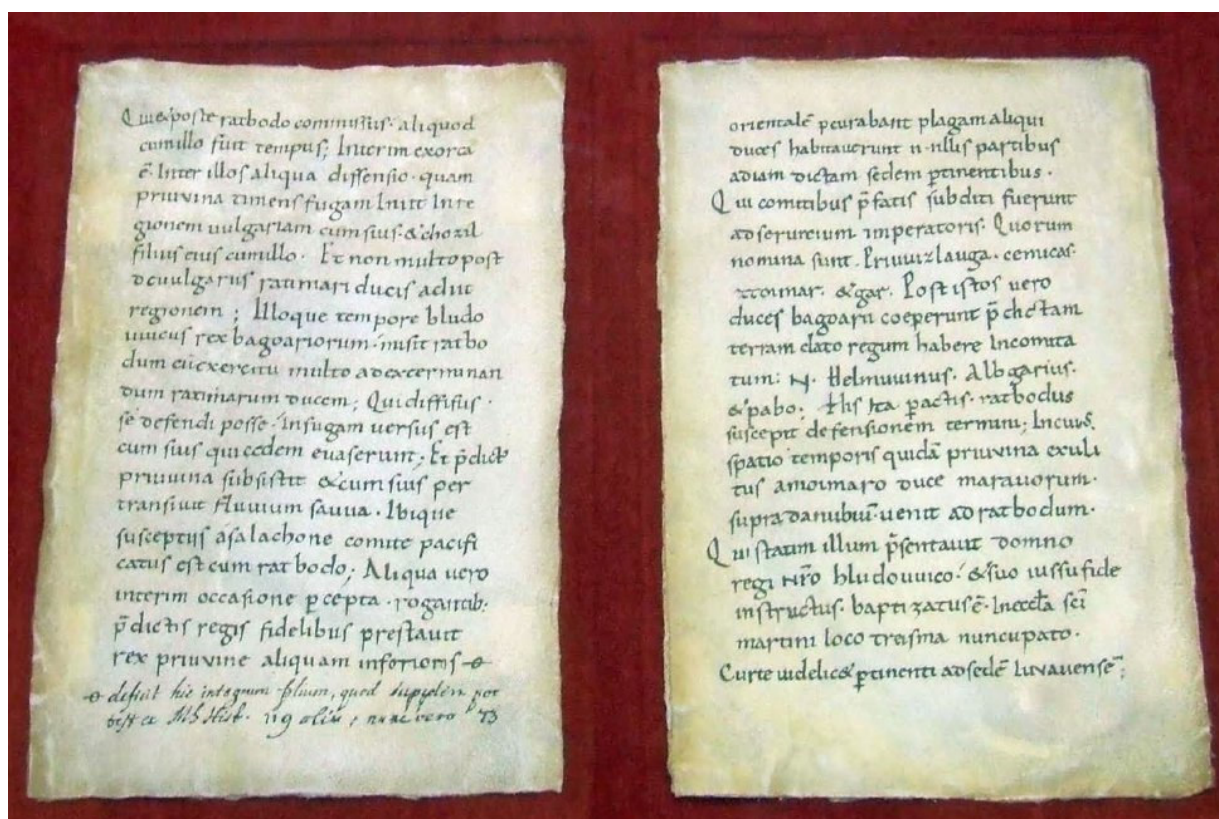 Qui & poste ratbodo commissus· aliquod
cum illo fuit tempus; Interim exorta
ē· Inter illos aliqua dissensio· quam
priuuina timens fugam Iniit In re
gionem uulgariam cum suis· & chozil
filius eius cum illo· Et non multo post
de uulgariis ratimari ducis adiit
regionem; Illoque tempore hludo
uuicus rex bagoariorum· misit ratbo
dum cū exercitu multo ad exterminan
dum ratimarum ducem; Qui diffisus·
se defendi posse· in fugam uersus est
cum suis qui cedem euaserunt; Et p̄dict
priuuina subsistit & cum suis per
transiuit fluuium sauua· Ibique
susceptus a salachone comite pacifi
catus est cum ratbodo; Aliqua uero
interim occasione pcepta· rogantib;
p̄dictis regis fidelibus prestauit
rex priuuine aliquam inferioris
deficit hic integrum folium, quod
Ms Hist. olim; nunc vero 73
orientalē pcurabant plagam aliqui
duces habitauerunt In illis partibus
ad iam dictam sedem ptinentibus·
Qui comitibus p̄fatis subditi fuerunt
ad seruicium imperatoris· Quorum
nomina sunt· Priuuizlauga· cemicas·
ztoimar· & gar· Post istos uero
duces bagoarii coeperunt p̄dictam
terram dato regum habere In comita
tum· N· Helmuuinus· Albgarius·
& pabo; His Ita pactis· ratbodus
suscepit defensionem termini; In cuius
spatio temporis quidā priuuina exuli
tus a moimaro duce marauorum·
supra danubiū· uenit ad ratbodum·
Qui statim illum p̄sentauit domno
regi nr̄o hludouuico· & suo iussu fide
instructus· baptizatus ē· In eccl̄a sc̄i
martini loco treisma nuncupato·
Curte uidelic& ptinenti ad sedē Iuuauensē;